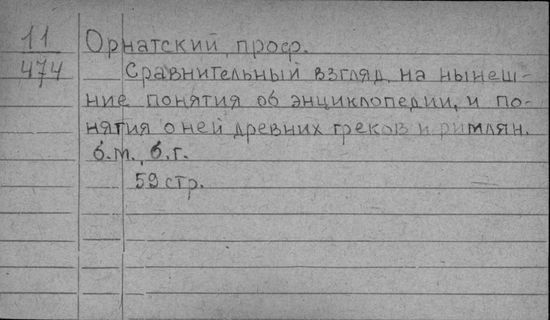 11
474
Орнатский, проф.
Сравнительный взгляд на нынеш-
ние понятия об энциклопедии, и по-
нятия о ней древних греков и римлян.
б.м., б.г.
59 стр.